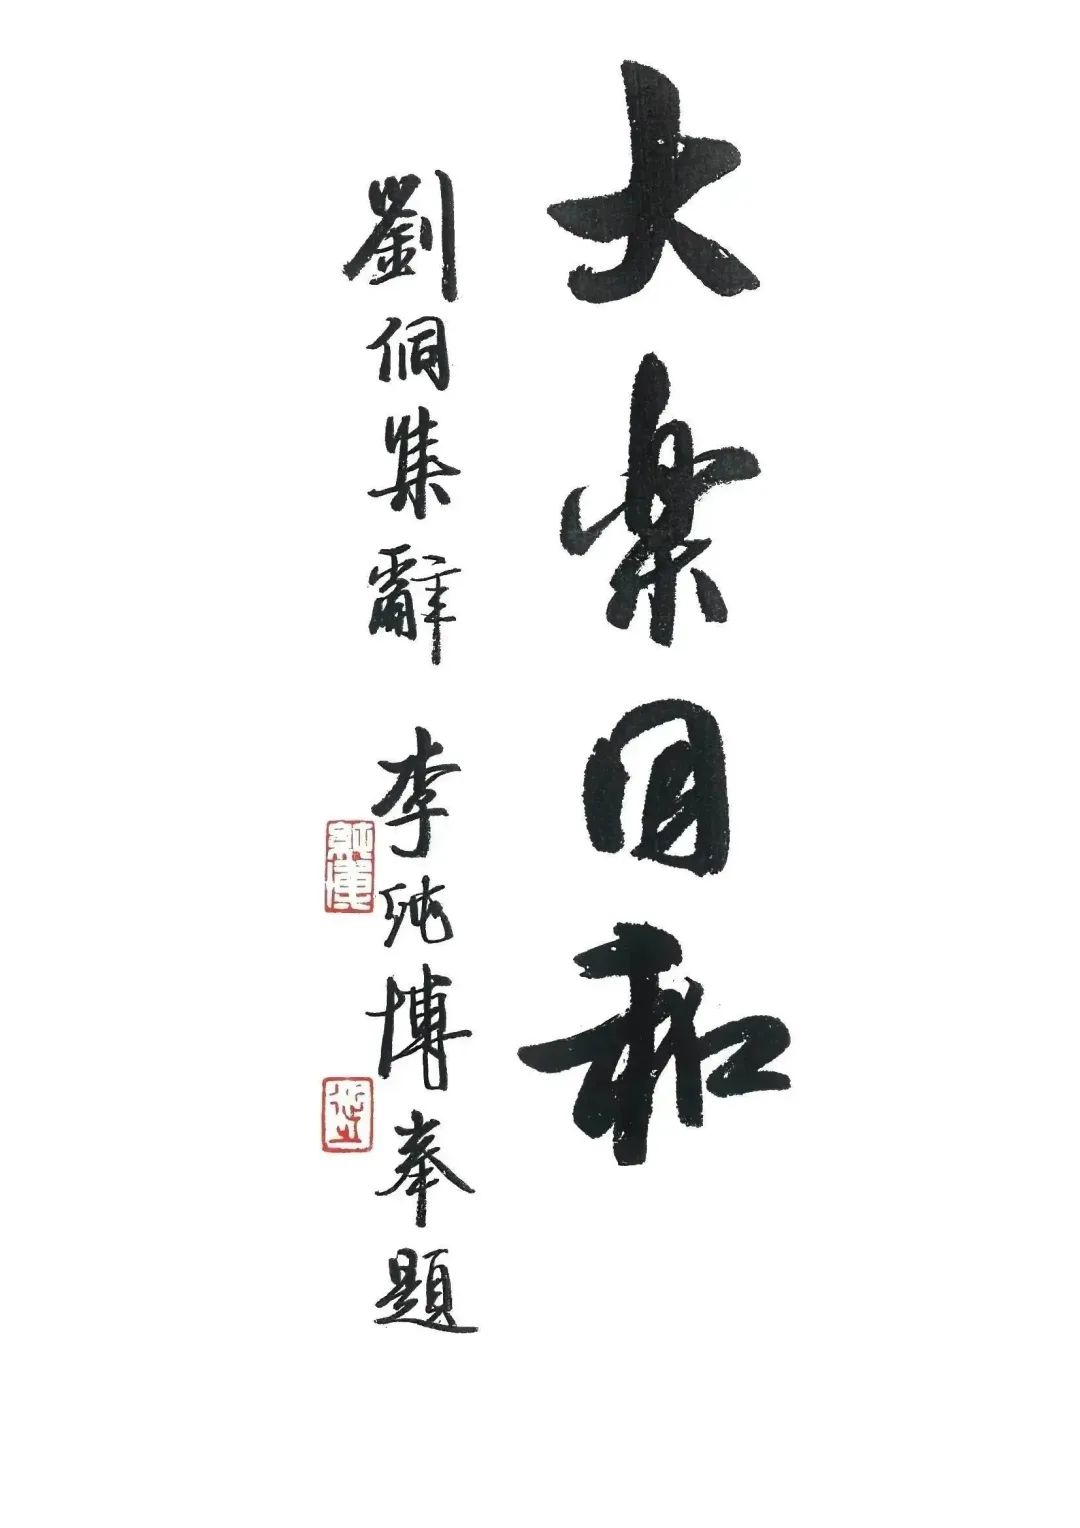 大楽同和
劉侗集辭 李純博奉題